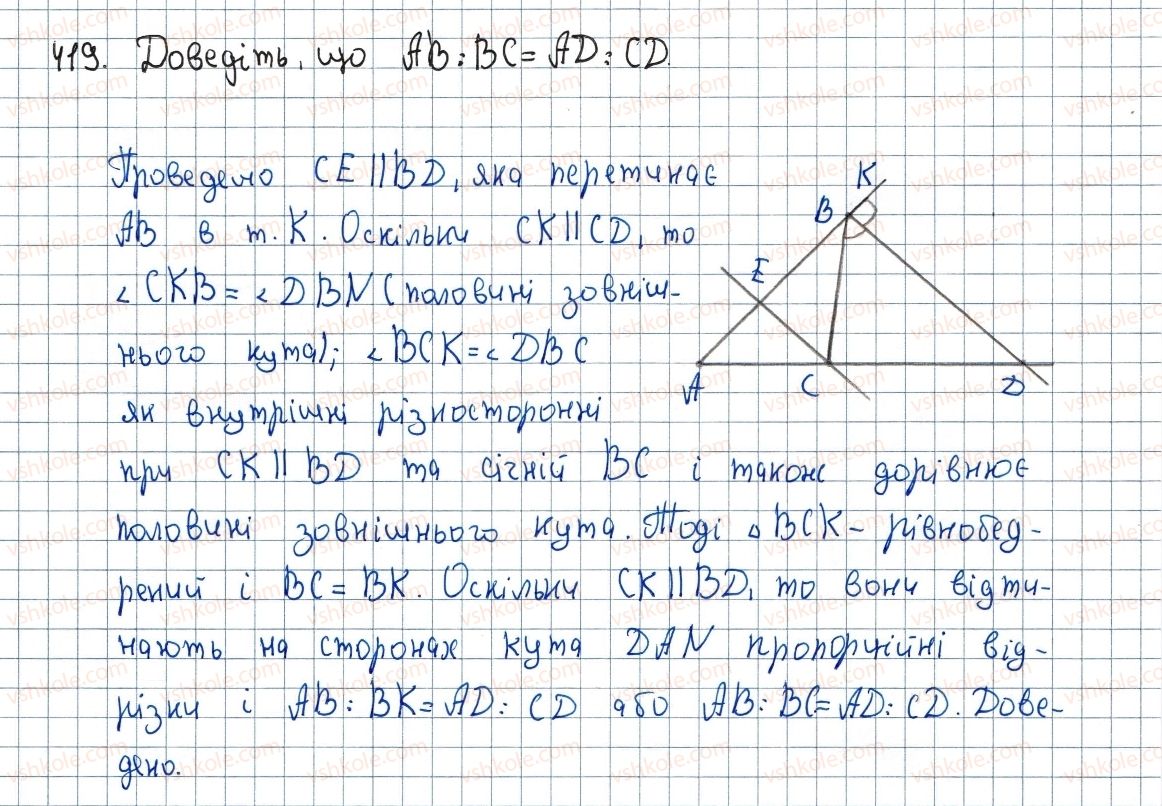 419. Доведіть, що AB:BC=AD:CD.
Проведемо CE||BD, яка перетинає
AB в т. K. Оскільки CK||CD, то
∠CKB=∠DBN (половині зовніш-
нього кута); ∠BCK=∠DBC
як внутрішні різносторонні
при CK||BD та січній BC і також дорівнює
половині зовнішнього кута. Тоді △BCK-рівнобед-
рений і BC=BK. Оскільки CK||BD, то вони відти-
нають на сторонах кута DAN пропорційні від-
різки і AB:BK=AD:CD або AB:BC=AD:CD. Дове-
дено.
K
B
E
A
C
D
vshkole.com